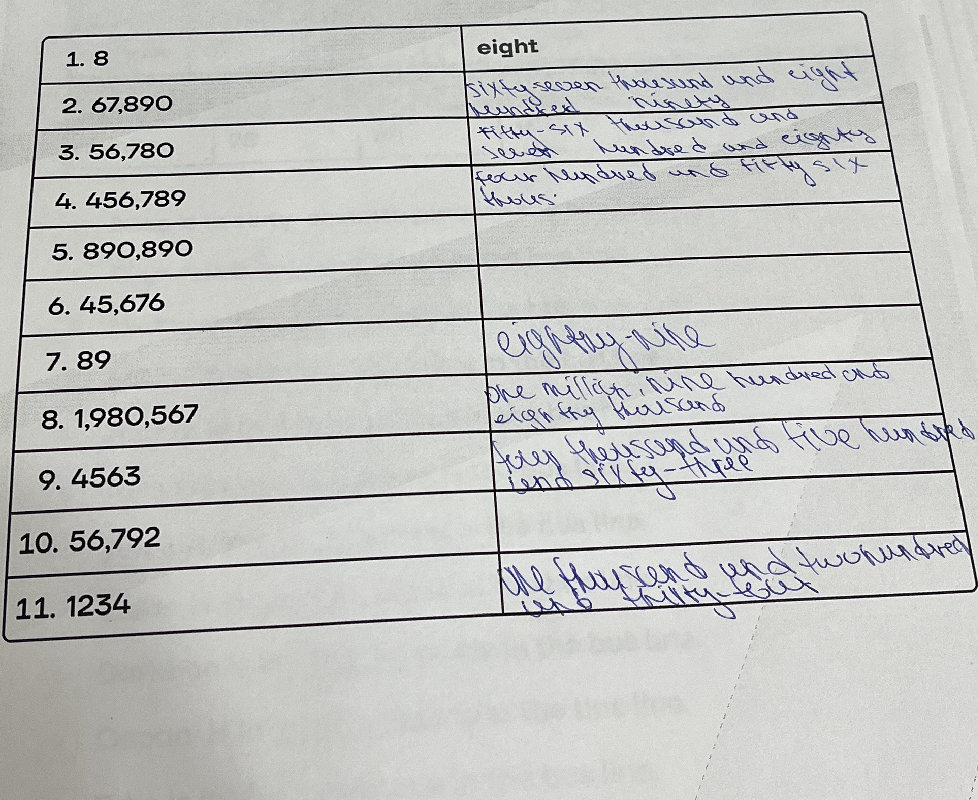 1. 8 eight
2. 67,890 sixty seven thousund and eight
hundred ninety
3. 56,780 fifty-six thousand and
seven hundred and eighty
4. 456,789 four hundred and fifty six
thous.
5. 890,890
6. 45,676
7. 89 eighthy-nine
8. 1,980,567 one million, nine hundred and
eighthy thousand
9. 4563 four thousand and five hundred
and sixty-three
10. 56,792
11. 1234 one thousand and two hundred
and thirty-four